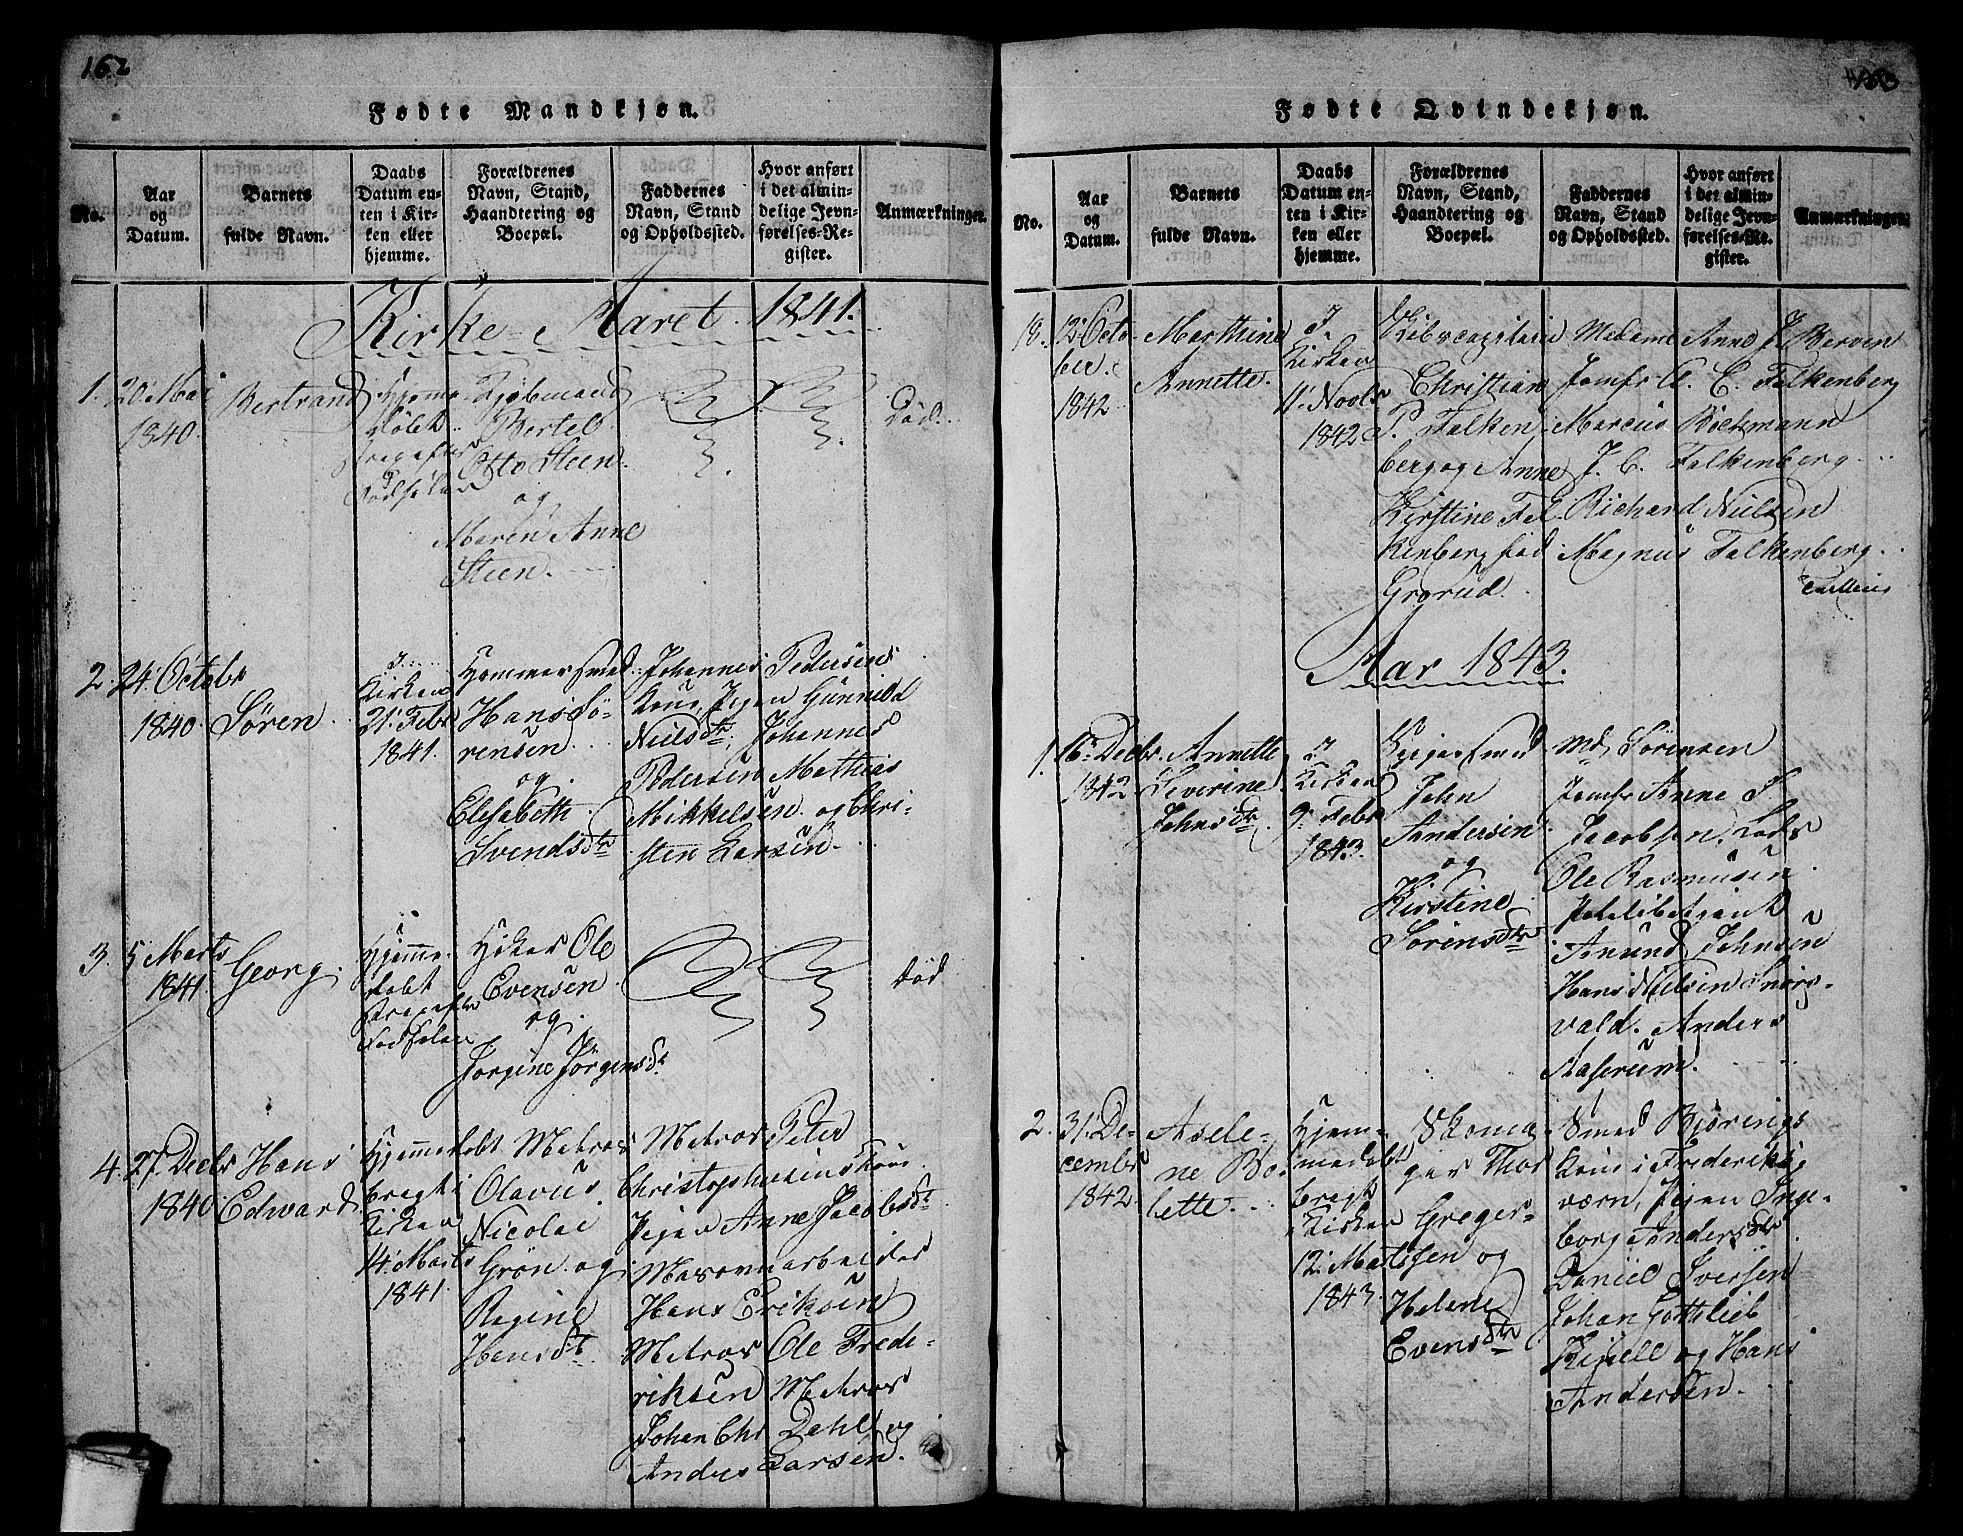 162
Fødte Mandkjøn.
No.
Aar
og
Datum.
Barnets
fulde Navn.
Daabs
Datum en-
ten i Kir-
ken eller
hjemme.
Forældrenes
Navn, Stand,
Haandtering og
Boepæl.
Faddernes
Navn, Stand
og Opholdssted.
Hvor anført
i det almin-
delige Jevn-
førelses-Re-
gister.
Anmærkninger.
Kirke-Aaret 1841.
1.
20 Mai
1840.
Bertrand
Hjemme
døbt
Bertel
Otto Steen
og
Maren Anne
Steen.
Død
2.
24 Octobr
1840.
Søren
I
Kirken
21 Febr
1841.
Hammersmed
Hans Sö-
rensen
og
Elisabeth
Svendsdtr
Johannes Pedersens
Kone, Pigen Gunnild
Nielsdtr, Johannes
Pedersen Mathias
Mikkelsen og Chri-
sten Larsen.
3.
5 Marts
1841.
Georg.
Hjemme-
døbt
Ole
Evensen
og
Jorgine Jörgensdt
død
4.
27 Decbr
1840
Hans
Edward
Hjemmedøbt
bragt i
Kirken
14 Marts
1841.
Matros
Olavus
Nicolai
Grön og
Regine
Hansdt.
Matros Peter
Christophersens Kone
Pigen Anne Jacobsdt
Masovnarbeider
Hans Eriksen
Matros Ole Frede-
riksen Matros
Johan Chr Dahl og
Anders Larsen.
Fødte Qvindekjøn.
No.
Aar
og
Datum.
Barnets
fulde Navn.
Daabs
Datum en-
ten i Kir-
ken eller
hjemme.
Forældrenes
Navn, Stand,
Haandtering og
Boepæl.
Faddernes
Navn, Stand
og Opholdssted.
Hvor anført
i det almin-
delige Jevn-
førelses-Re-
gister.
Anmærkninger.
18.
12 Octo-
ber.
1842
Marthine
Annette.
I
Kirken
11 Novbr
1842
Skibscapitain
Christian
P. Falken-
berg og Anne
Kirstine Fal-
kenberg fød
Grorud.
Madame Anne J. Berven
Jomfr C. Falkenberg
Marcus Böckmann
J. C. Falkenberg
Richard Nielsen
Magnus Falkenberg
Aar 1843.
1.
16 Decbr
1842
Annette
Severine
Johnsdtr.
I
Kirken
9 Febr
1843.
John
Andersen
og
Kirstine
Sörensdtr
Md Sörensen
Jomfr Anne
Jacobsen, Lods
Ole Rasmusen
Anund Johnsen
Hans Nielsen Snørs-
vald. Anders
Aaserum.
2.
31 De-
cembr
1842.
Asele-
ne Bo-
lette.
Hjem-
medøbt
bragt
i Kirken
12 Marts
1843.
Skoma-
ger Thor
Greger-
sen og
Helene
Evensdtr
Smed Bjørings
Kone i Frederiks-
værn, Pigen Inge-
borg Andersdtr
Daniel Iversen
Johan Gottlieb
og Hans
Andersen.